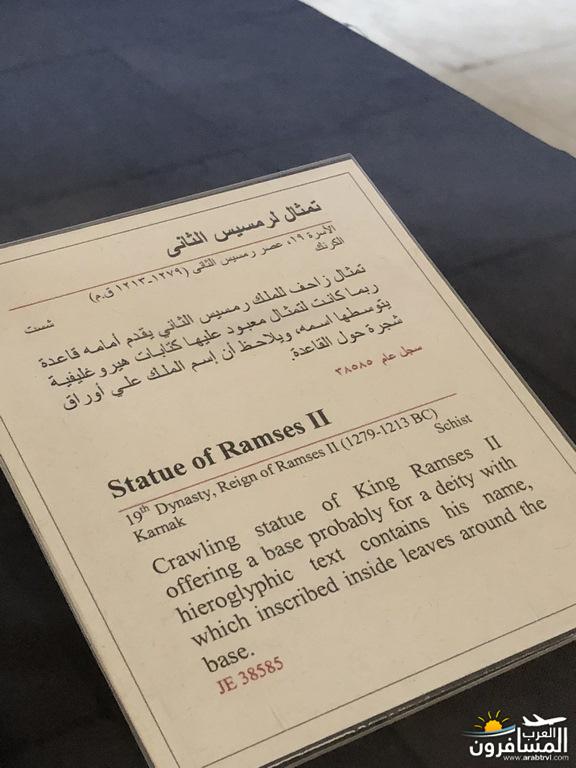 تمثال لرمسيس الثانى
الأسرة ١٩، عصر رمسيس الثانى (١٢٧٩-١٢١٣ ق.م)
الكرنك
شست
تمثال زاحف للملك رمسيس الثاني يقدم أمامه قاعدة
ربما كانت لتمثال معبود عليها كتابات هيروغليفية
يتوسطها اسمه، ويلاحظ أن إسم الملك علي أوراق
شجرة حول القاعدة.
سجل عام ٣٨٥٨٥
Statue of Ramses II
19th Dynasty, Reign of Ramses II (1279-1213 BC)
Karnak
Schist
Crawling statue of King Ramses II
offering a base probably for a deity with
hieroglyphic text contains his name,
which inscribed inside leaves around the
base.
JE 38585
العرب
المسافرون
www.arabtrvl.com